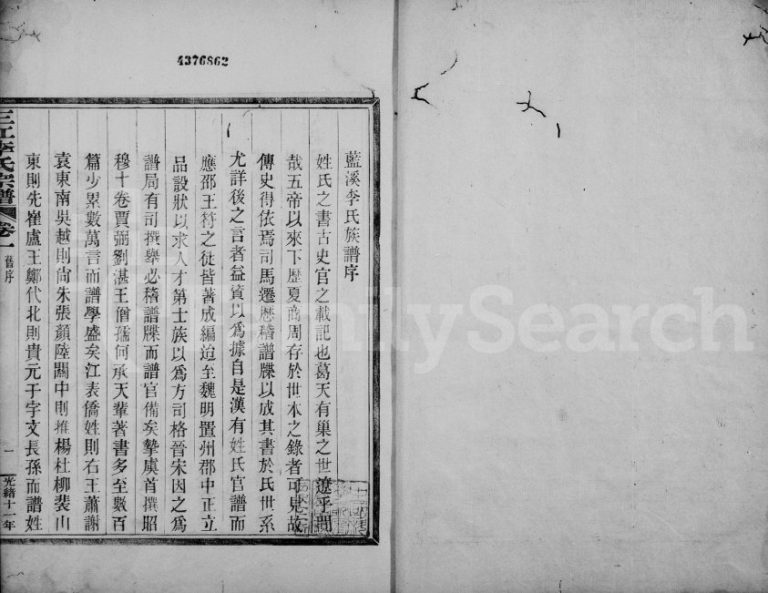 4376862
藍溪李氏族譜序
姓氏之書古史官之載記也葛天有巢之世遼乎閴
哉五帝以來下歴夏商周存於世本之錄者可見故
傳史得依焉司馬遷歴稽譜牒以成其書於氏世系
尤詳後之言者益資以為據自是漢有姓氏官譜而
應邵王符之徒皆著成編迨至魏明置州郡中正立
品設狀以求人才第士族以為方司格晉宋因之為
譜局有司撰舉必稽譜牒而譜官備矣摯虞首撰昭
穆十卷賈弼劉湛王僧孺何承天輩著書多至數百
篇少累數萬言而譜學盛矣江表僑姓則右王蕭謝
袁東南吳越則尙朱張顏陸關中則推楊杜柳裴山
東則先崔盧王鄭代北則貴元于宇文長孫而譜姓
三江李氏宗譜 卷一 舊序 一 光緒十一年
FamilySearch